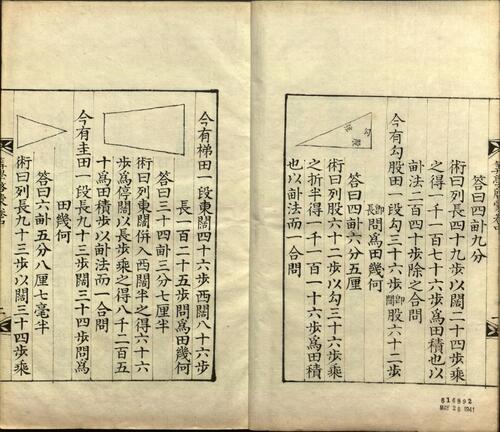 答曰四畝九分
術曰列長四十九步以闊二十四步乘
之得一千一百七十六步為田積也以
畝法二百四十步除之合問
今有勾股田一段勾三十六步即闊股六十二步
即長問為田幾何
答曰四畝六分五厘
術曰列股六十二步以勾三十六步乘
之折半得一千一百一十六步為田積
也以畝法而一合問
勾
股
弦
今有梯田一段東闊四十六步西闊八十六步
長一百二十五步問為田幾何
答曰三十四畝三分七厘半
術曰列東闊併入西闊半之得六十六
步為停闊以長步乘之得八千二百五
十為田積步以畝法而一合問
今有圭田一段長九十三步闊三十四步問為
田幾何
答曰六畝五分八厘七毫半
術曰列長九十三步以闊三十四步乘
616892
MAY 26 1941